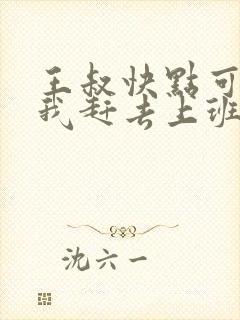 王叔快點可
我赶去上班
沈六一